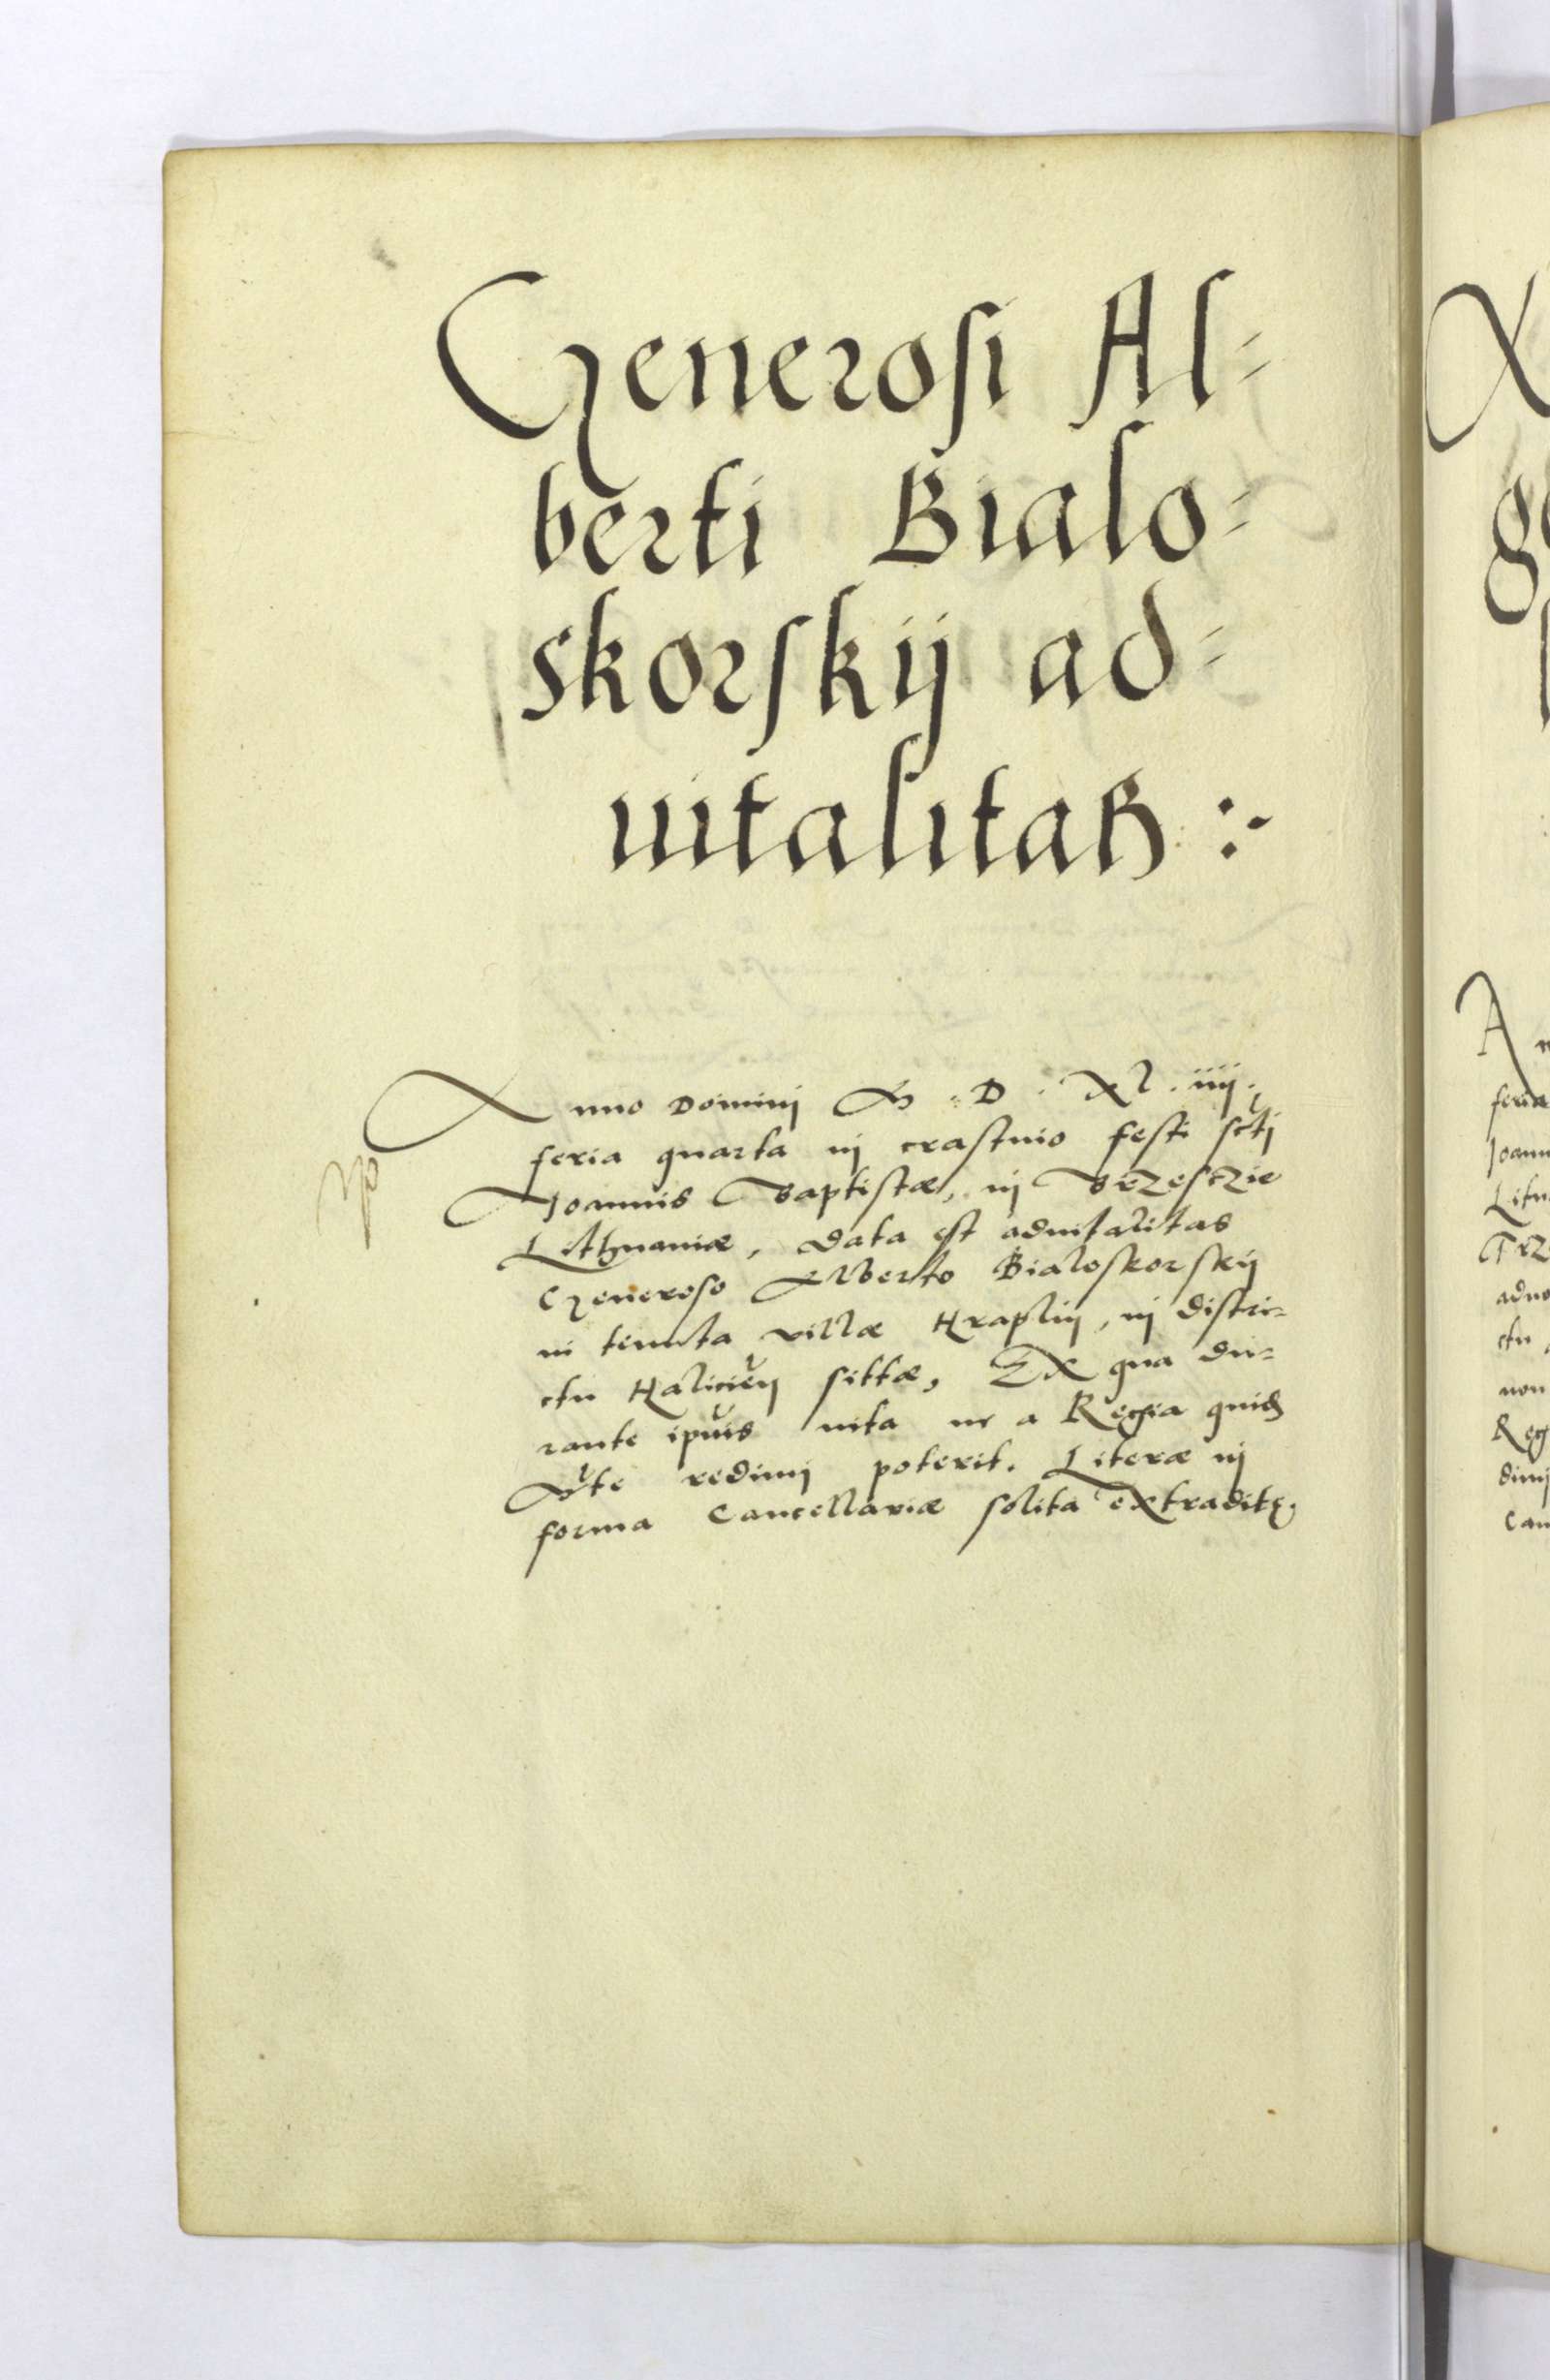 Generosi Al-
berti Bialo-
skorskij ad-
uitalitas :-
Anno Dominj M . D . XL . iiij .
feria quarta in crastino festi scti
Joannis Baptistæ, in Brzesczie
Lithuaniæ, data est aduitalitas
Generoso Alberto Bialoskorskij
in tenuta villæ Hraplin, in distri-
ctu Halicien sittæ, Ex qua du-
rante ipius uita nec a Regia quidem
Mte redimi poterit. Literæ in
forma Cancellariæ solita extraditę.